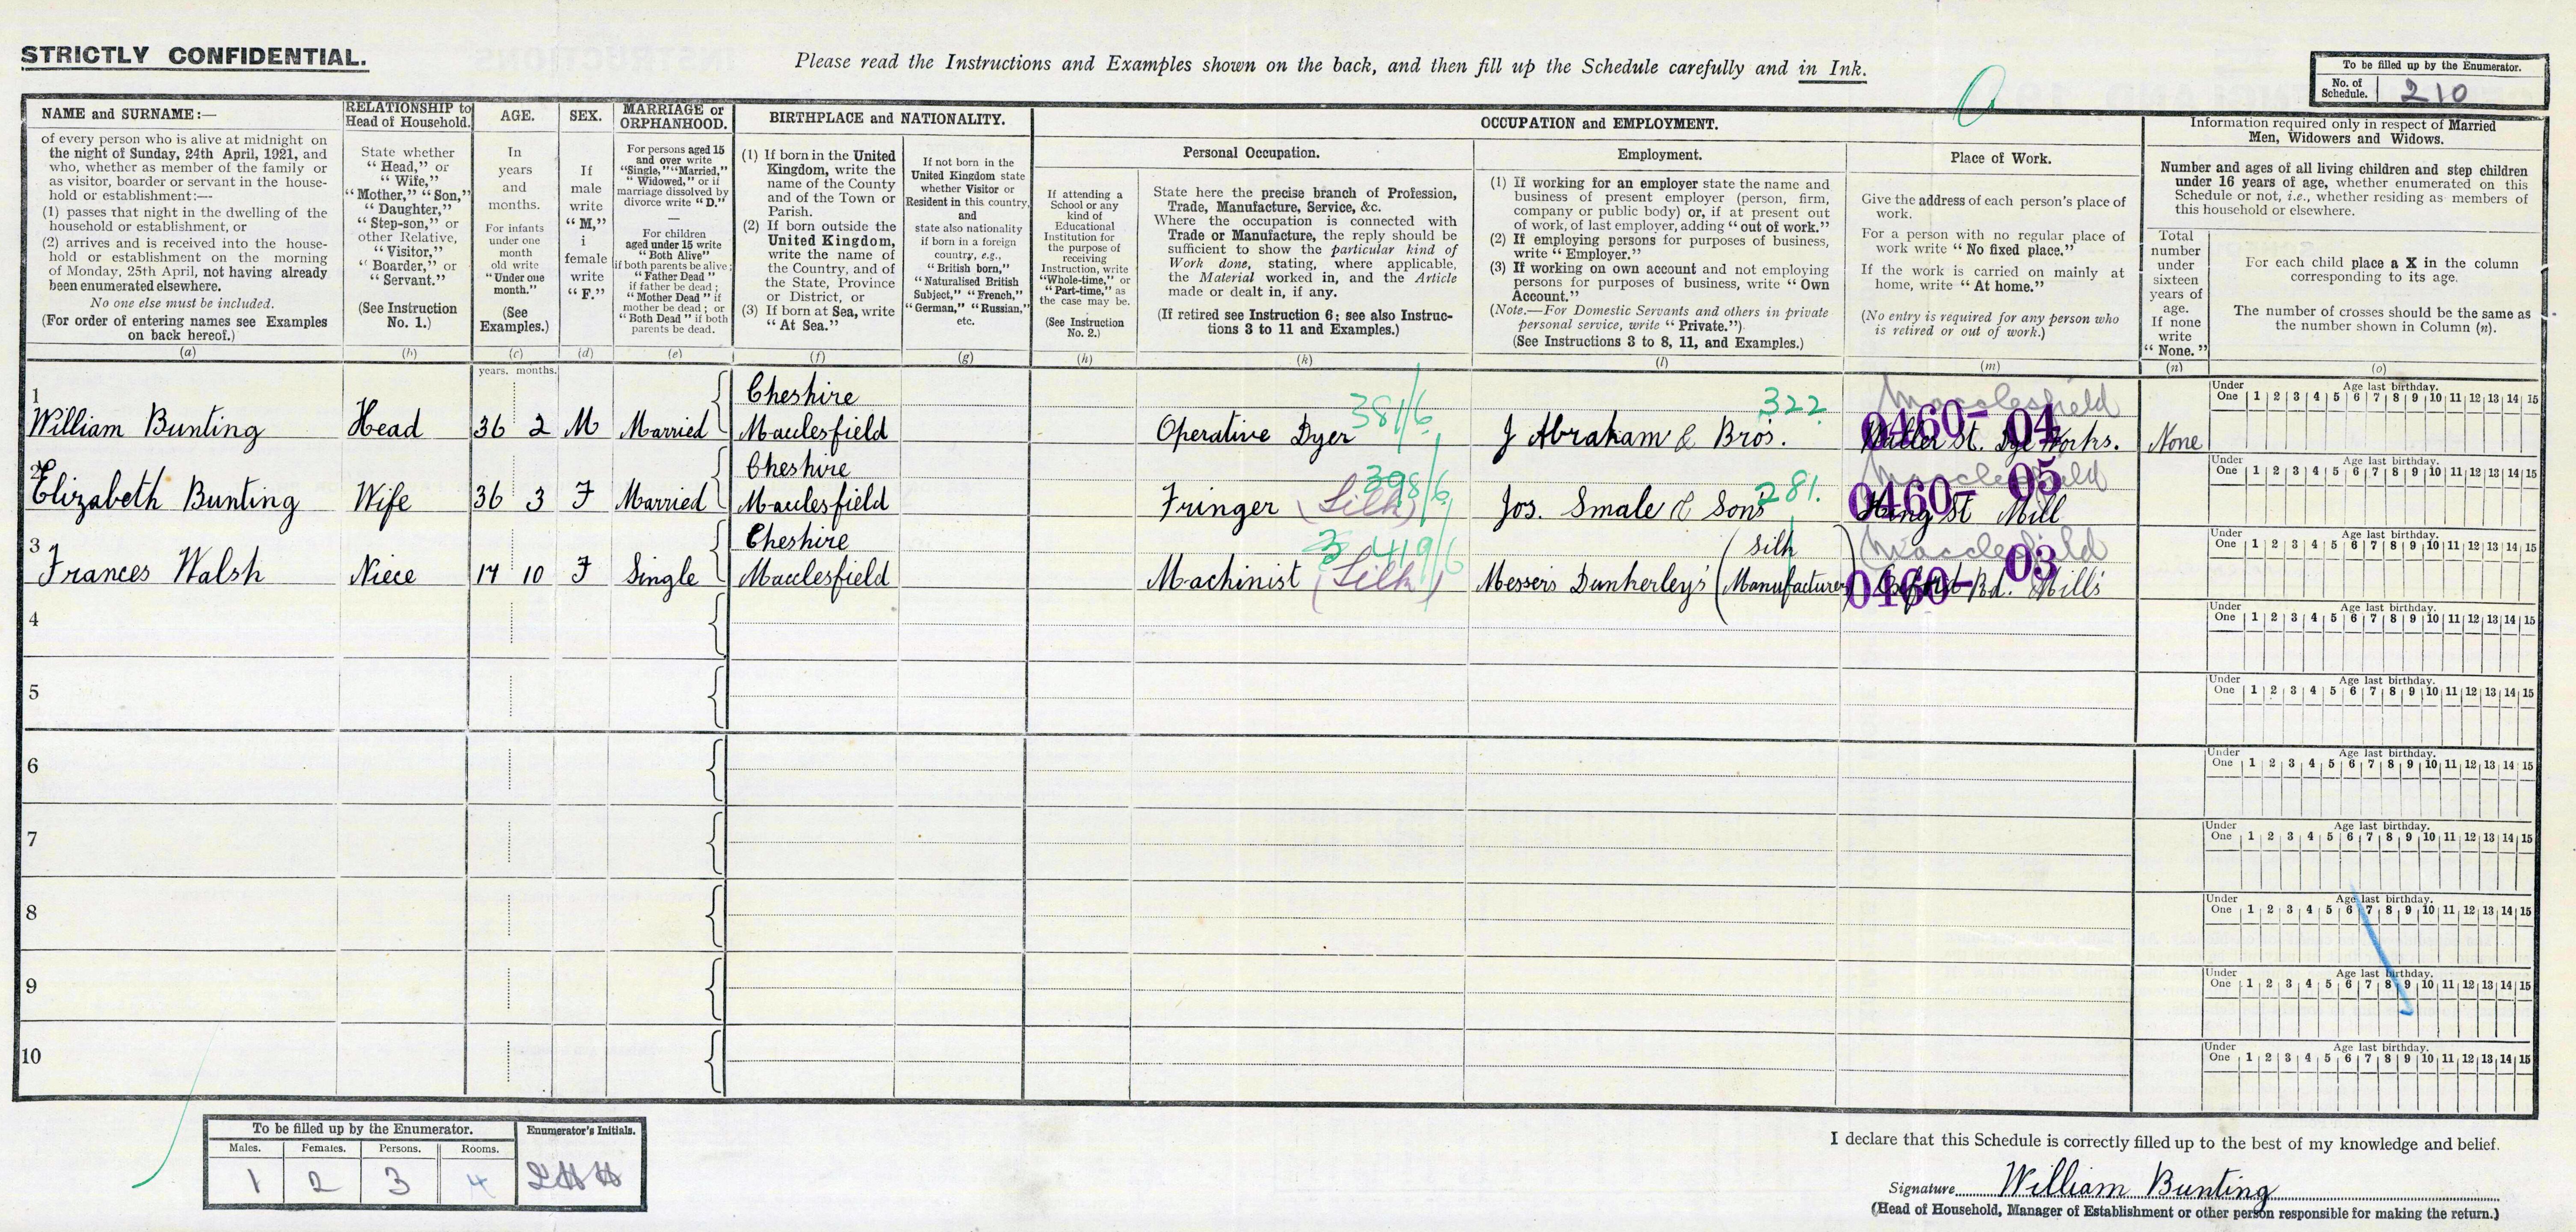 STRICTLY CONFIDENTIAL.
Please read the Instructions and Examples shown on the back, and then fill up the Schedule carefully and in Ink.
To be filled up by the Enumerator.
No. of Schedule. 210
NAME and SURNAME:—
of every person who is alive at midnight on
the night of Sunday, 24th April, 1921, and
who, whether as member of the family or
as visitor, boarder or servant in the house-
hold or establishment:—
(1) passes that night in the dwelling of the
household or establishment, or
(2) arrives and is received into the house-
hold or establishment on the morning
of Monday, 25th April, not having already
been enumerated elsewhere.
No one else must be included.
(For order of entering names see Examples
on back hereof.)
(a)
RELATIONSHIP to
Head of Household.
State whether
"Head," or
"Wife,"
"Mother," "Son,"
"Daughter,"
"Step-son," or
other Relative,
"Visitor,"
"Boarder," or
"Servant."
(See Instruction
No. 1.)
(b)
AGE.
In
years
and
months.
For infants
under one
month
old write
"Under one
month."
(See
Examples.)
(c)
SEX.
If
male
write
"M,"
i
female
write
"F."
(d)
MARRIAGE or
ORPHANHOOD.
For persons aged 15
and over write
"Single," "Married,"
"Widowed," or if
marriage dissolved by
divorce write "D."
—
For children
aged under 15 write
"Both Alive"
if both parents be alive;
"Father Dead"
if father be dead;
"Mother Dead" if
mother be dead; or
"Both Dead" if both
parents be dead.
(e)
BIRTHPLACE and NATIONALITY.
(1) If born in the United
Kingdom, write the
name of the County
and of the Town or
Parish.
(2) If born outside the
United Kingdom,
write the name of
the Country, and of
the State, Province
or District, or
(3) If born at Sea, write
"At Sea."
(f)
If not born in the
United Kingdom state
whether Visitor or
Resident in this country,
and
state also nationality
if born in a foreign
country, e.g.,
"British born,"
"Naturalised British
Subject," "French,"
"German," "Russian,"
etc.
(g)
OCCUPATION and EMPLOYMENT.
If attending a
School or any
kind of
Educational
Institution for
the purpose of
receiving
Instruction, write
"Whole-time," or
"Part-time," as
the case may be.
(See Instruction
No. 2.)
(h)
Personal Occupation.
State here the precise branch of Profession,
Trade, Manufacture, Service, &c.
Where the occupation is connected with
Trade or Manufacture, the reply should be
sufficient to show the particular kind of
Work done, stating, where applicable,
the Material worked in, and the Article
made or dealt in, if any.
(If retired see Instruction 6; see also Instruc-
tions 3 to 11 and Examples.)
(k)
Employment.
(1) If working for an employer state the name and
business of present employer (person, firm,
company or public body) or, if at present out
of work, of last employer, adding "out of work."
(2) If employing persons for purposes of business,
write "Employer."
(3) If working on own account and not employing
persons for purposes of business, write "Own
Account."
(Note.—For Domestic Servants and others in private
personal service, write "Private.")
(See Instructions 3 to 8, 11, and Examples.)
(l)
Place of Work.
Give the address of each person's place of
work.
For a person with no regular place of
work write "No fixed place."
If the work is carried on mainly at
home, write "At home."
(No entry is required for any person who
is retired or out of work.)
(m)
Information required only in respect of Married
Men, Widowers and Widows.
Number and ages of all living children and step children
under 16 years of age, whether enumerated on this
Schedule or not, i.e., whether residing as members of
this household or elsewhere.
Total
number
under
sixteen
years of
age.
If none
write
"None."
(n)
For each child place a X in the column
corresponding to its age.
The number of crosses should be the same as
the number shown in Column (n).
(o)
years. months.
1 William Bunting Head 36 2 M Married Cheshire Macclesfield Operative Dyer 381/6 J Abraham & Bros. 322 Macclesfield 0460-04 St. Dye Works. None
Under One 1 2 3 4 5 6 7 8 9 10 11 12 13 14 15 Age last birthday.
2 Elizabeth Bunting Wife 36 3 F Married Cheshire Macclesfield Fringer (Silk) 398/6 Jos. Smale & Sons 281. Macclesfield 0460-05 King St Mill
Under One 1 2 3 4 5 6 7 8 9 10 11 12 13 14 15 Age last birthday.
3 Frances Walsh Niece 17 10 F Single Cheshire Macclesfield Machinist (Silk) 419/6 Messers Dunkerley's (Silk Manufacturer) Macclesfield 0460-03 Rd. Mills
Under One 1 2 3 4 5 6 7 8 9 10 11 12 13 14 15 Age last birthday.
4
Under One 1 2 3 4 5 6 7 8 9 10 11 12 13 14 15 Age last birthday.
5
Under One 1 2 3 4 5 6 7 8 9 10 11 12 13 14 15 Age last birthday.
6
Under One 1 2 3 4 5 6 7 8 9 10 11 12 13 14 15 Age last birthday.
7
Under One 1 2 3 4 5 6 7 8 9 10 11 12 13 14 15 Age last birthday.
8
Under One 1 2 3 4 5 6 7 8 9 10 11 12 13 14 15 Age last birthday.
9
Under One 1 2 3 4 5 6 7 8 9 10 11 12 13 14 15 Age last birthday.
10
Under One 1 2 3 4 5 6 7 8 9 10 11 12 13 14 15 Age last birthday.
To be filled up by the Enumerator.
Males. Females. Persons. Rooms.
1 2 3 4
Enumerator's Initials.
I declare that this Schedule is correctly filled up to the best of my knowledge and belief.
Signature William Bunting
(Head of Household, Manager of Establishment or other person responsible for making the return.)